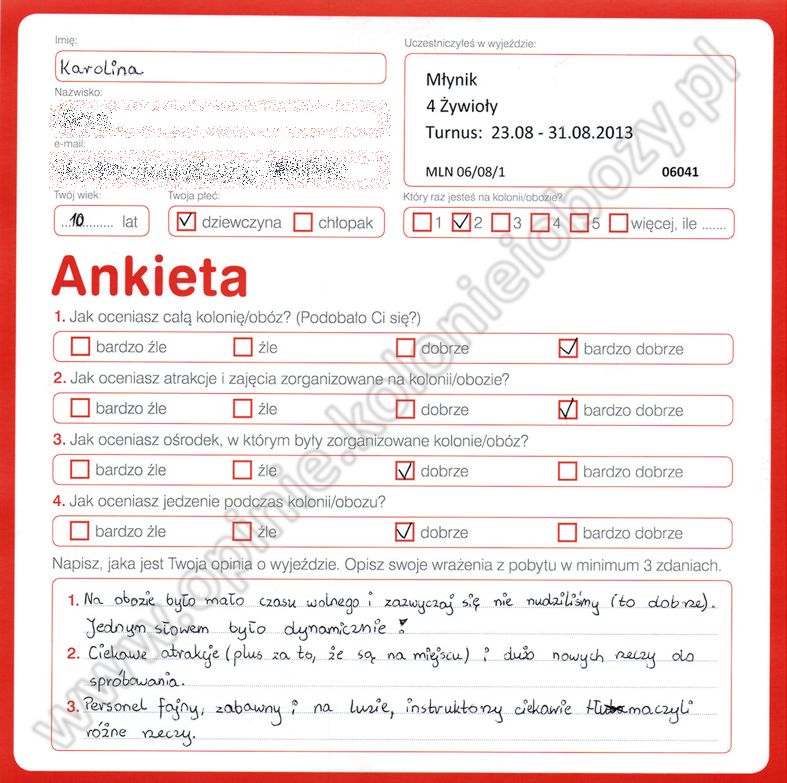 Imię:
Karolina
Uczestniczyłeś w wyjeździe:
Młynik
4 Żywioły
Turnus: 23.08 - 31.08.2013
MLN 06/08/1 06041
Nazwisko:
e-mail:
Twój wiek: Twoja płeć: Który raz jesteś na kolonii/obozie?
10 lat dziewczyna chłopak 1 2 3 4 5 więcej, ile .......
Ankieta
1. Jak oceniasz całą kolonię/obóz? (Podobało Ci się?)
bardzo źle źle dobrze bardzo dobrze
2. Jak oceniasz atrakcje i zajęcia zorganizowane na kolonii/obozie?
bardzo źle źle dobrze bardzo dobrze
3. Jak oceniasz ośrodek, w którym były zorganizowane kolonie/obóz?
bardzo źle źle dobrze bardzo dobrze
4. Jak oceniasz jedzenie podczas kolonii/obozu?
bardzo źle źle dobrze bardzo dobrze
Napisz, jaka jest Twoja opinia o wyjeździe. Opisz swoje wrażenia z pobytu w minimum 3 zdaniach.
1. Na obozie było mało czasu wolnego i zazwyczaj się nie nudziliśmy (to dobrze).
Jednym słowem było dynamicznie!
2. Ciekawe atrakcje (plus za to, że są na miejscu) i dużo nowych rzeczy do
spróbowania.
3. Personel fajny, zabawny i na luzie, instruktorzy ciekawie tłumaczyli
różne rzeczy.
www.opinie.kolonieiobozy.pl